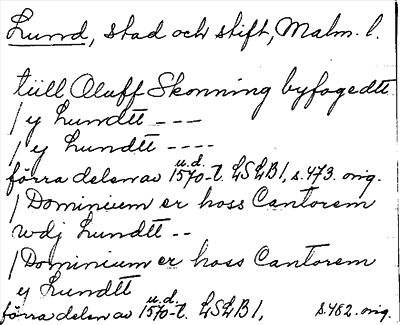 Lund, stad och stift, Malm. l.
tiill Oluff Skonning byfogedtt
/ y Lundtt ---
/ y Lundtt ----
förra delen av u.d. 1570-t. LSLB1, s.473. orig.
/ Dominium er hoss Cantorem
wdj Lundtt --
/ Dominium er hoss Cantorem
y Lundtt
förra delen av u.d. 1570-t. LSLB1, s.482. orig.